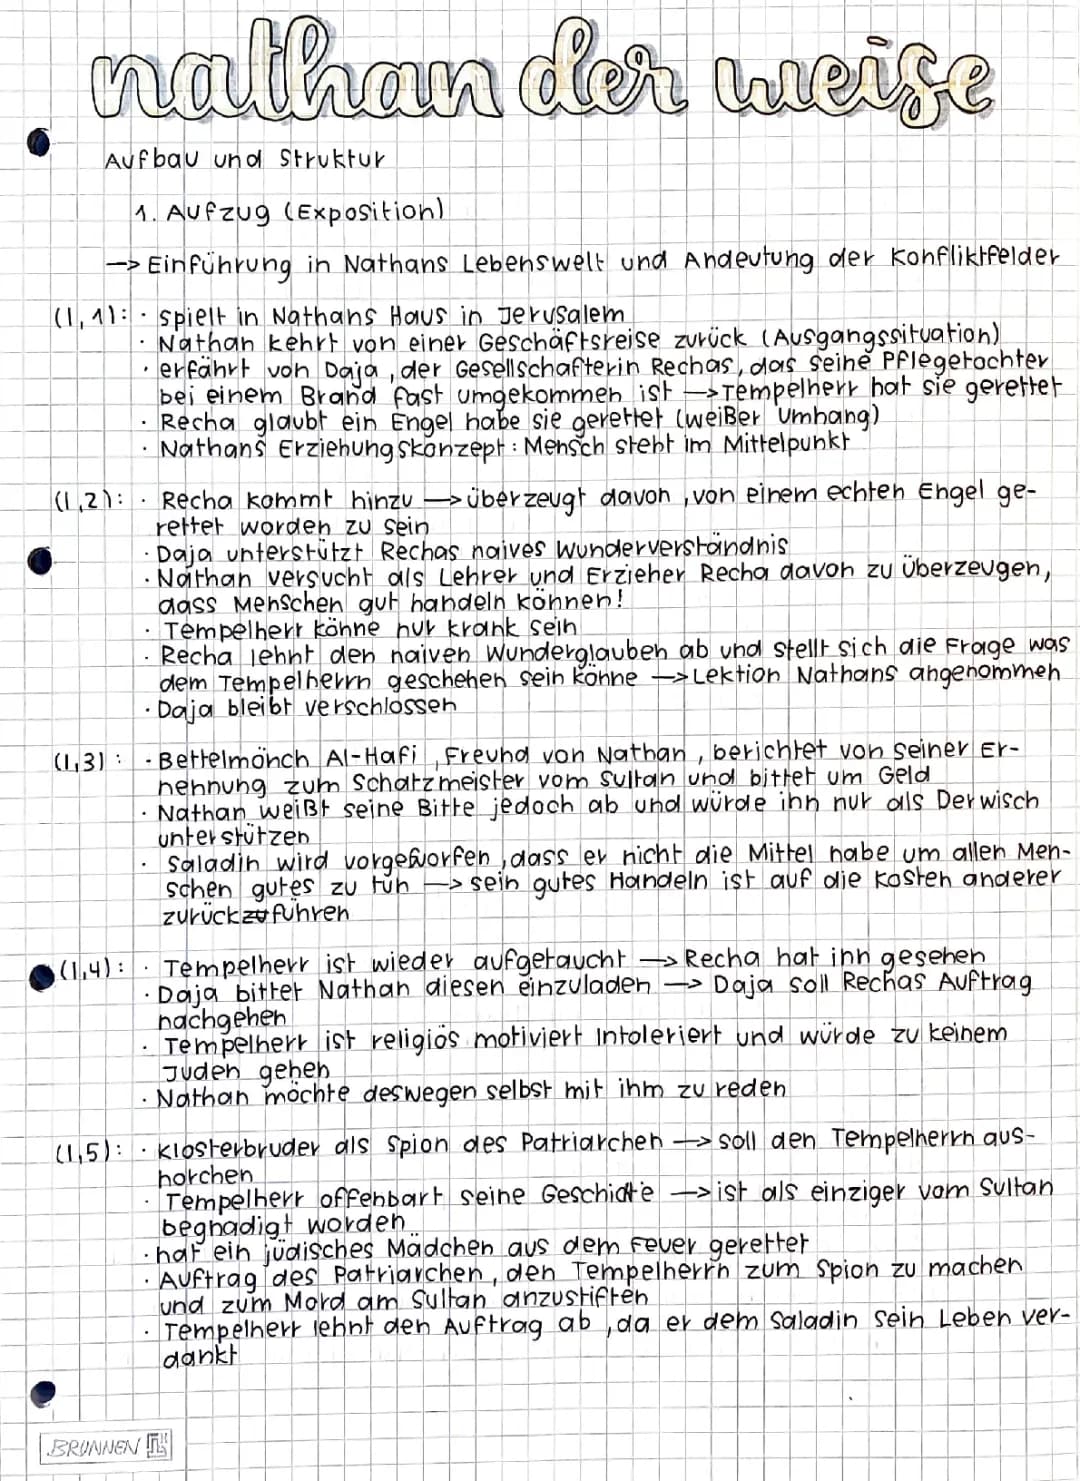 nathan der weise
Aufbau und Struktur
1. Aufzug (Exposition)
–> Einführung in Nathans Lebenswelt und Andeutung der Konfliktfelder
(1,1): · spielt in Nathans Haus in Jerusalem
· Nathan kehrt von einer Geschäftsreise zurück (Ausgangssituation)
· erfährt von Daja, der Gesellschafterin Rechas, das seine Pflegetochter
bei einem Brand fast umgekommen ist –> Tempelherr hat sie gerettet
· Recha glaubt ein Engel habe sie gerettet (weißer Umhang)
· Nathans Erziehungskonzept: Mensch steht im Mittelpunkt
(1,2): · Recha kommt hinzu –> überzeugt davon, von einem echten Engel ge-
rettet worden zu sein
· Daja unterstützt Rechas naives Wunderverständnis
· Nathan versucht als Lehrer und Erzieher Recha davon zu überzeugen,
dass Menschen gut handeln können!
· Tempelherr könne nur krank sein
· Recha lehnt den naiven Wunderglauben ab und stellt sich die Frage was
dem Tempelherrn geschehen sein könne –> Lektion Nathans angenommen
· Daja bleibt verschlossen
(1,3): · Bettelmönch Al-Hafi, Freund von Nathan, berichtet von seiner Er-
nennung zum Schatzmeister vom Sultan und bittet um Geld
· Nathan weißt seine Bitte jedoch ab und würde ihn nur als Derwisch
unterstützen
· Saladin wird vorgeworfen, dass er nicht die Mittel habe um allen Men-
schen gutes zu tun –> sein gutes Handeln ist auf die Kosten anderer
zurückzuführen
(1,4): · Tempelherr ist wieder aufgetaucht –> Recha hat ihn gesehen
· Daja bittet Nathan diesen einzuladen –> Daja soll Rechas Auftrag
nachgehen
· Tempelherr ist religiös motiviert Intoleriert und würde zu keinem
Juden gehen
· Nathan möchte deswegen selbst mit ihm zu reden
(1,5): · Klosterbruder als Spion des Patriarchen –> soll den Tempelherrn aus-
horchen
· Tempelherr offenbart seine Geschichte –> ist als einziger vom Sultan
begnadigt worden
· hat ein jüdisches Mädchen aus dem Feuer gerettet
· Auftrag des Patriarchen, den Tempelherrn zum Spion zu machen
und zum Mord am Sultan anzustiften
· Tempelherr lehnt den Auftrag ab, da er dem Saladin sein Leben ver-
dankt
BRUNNEN